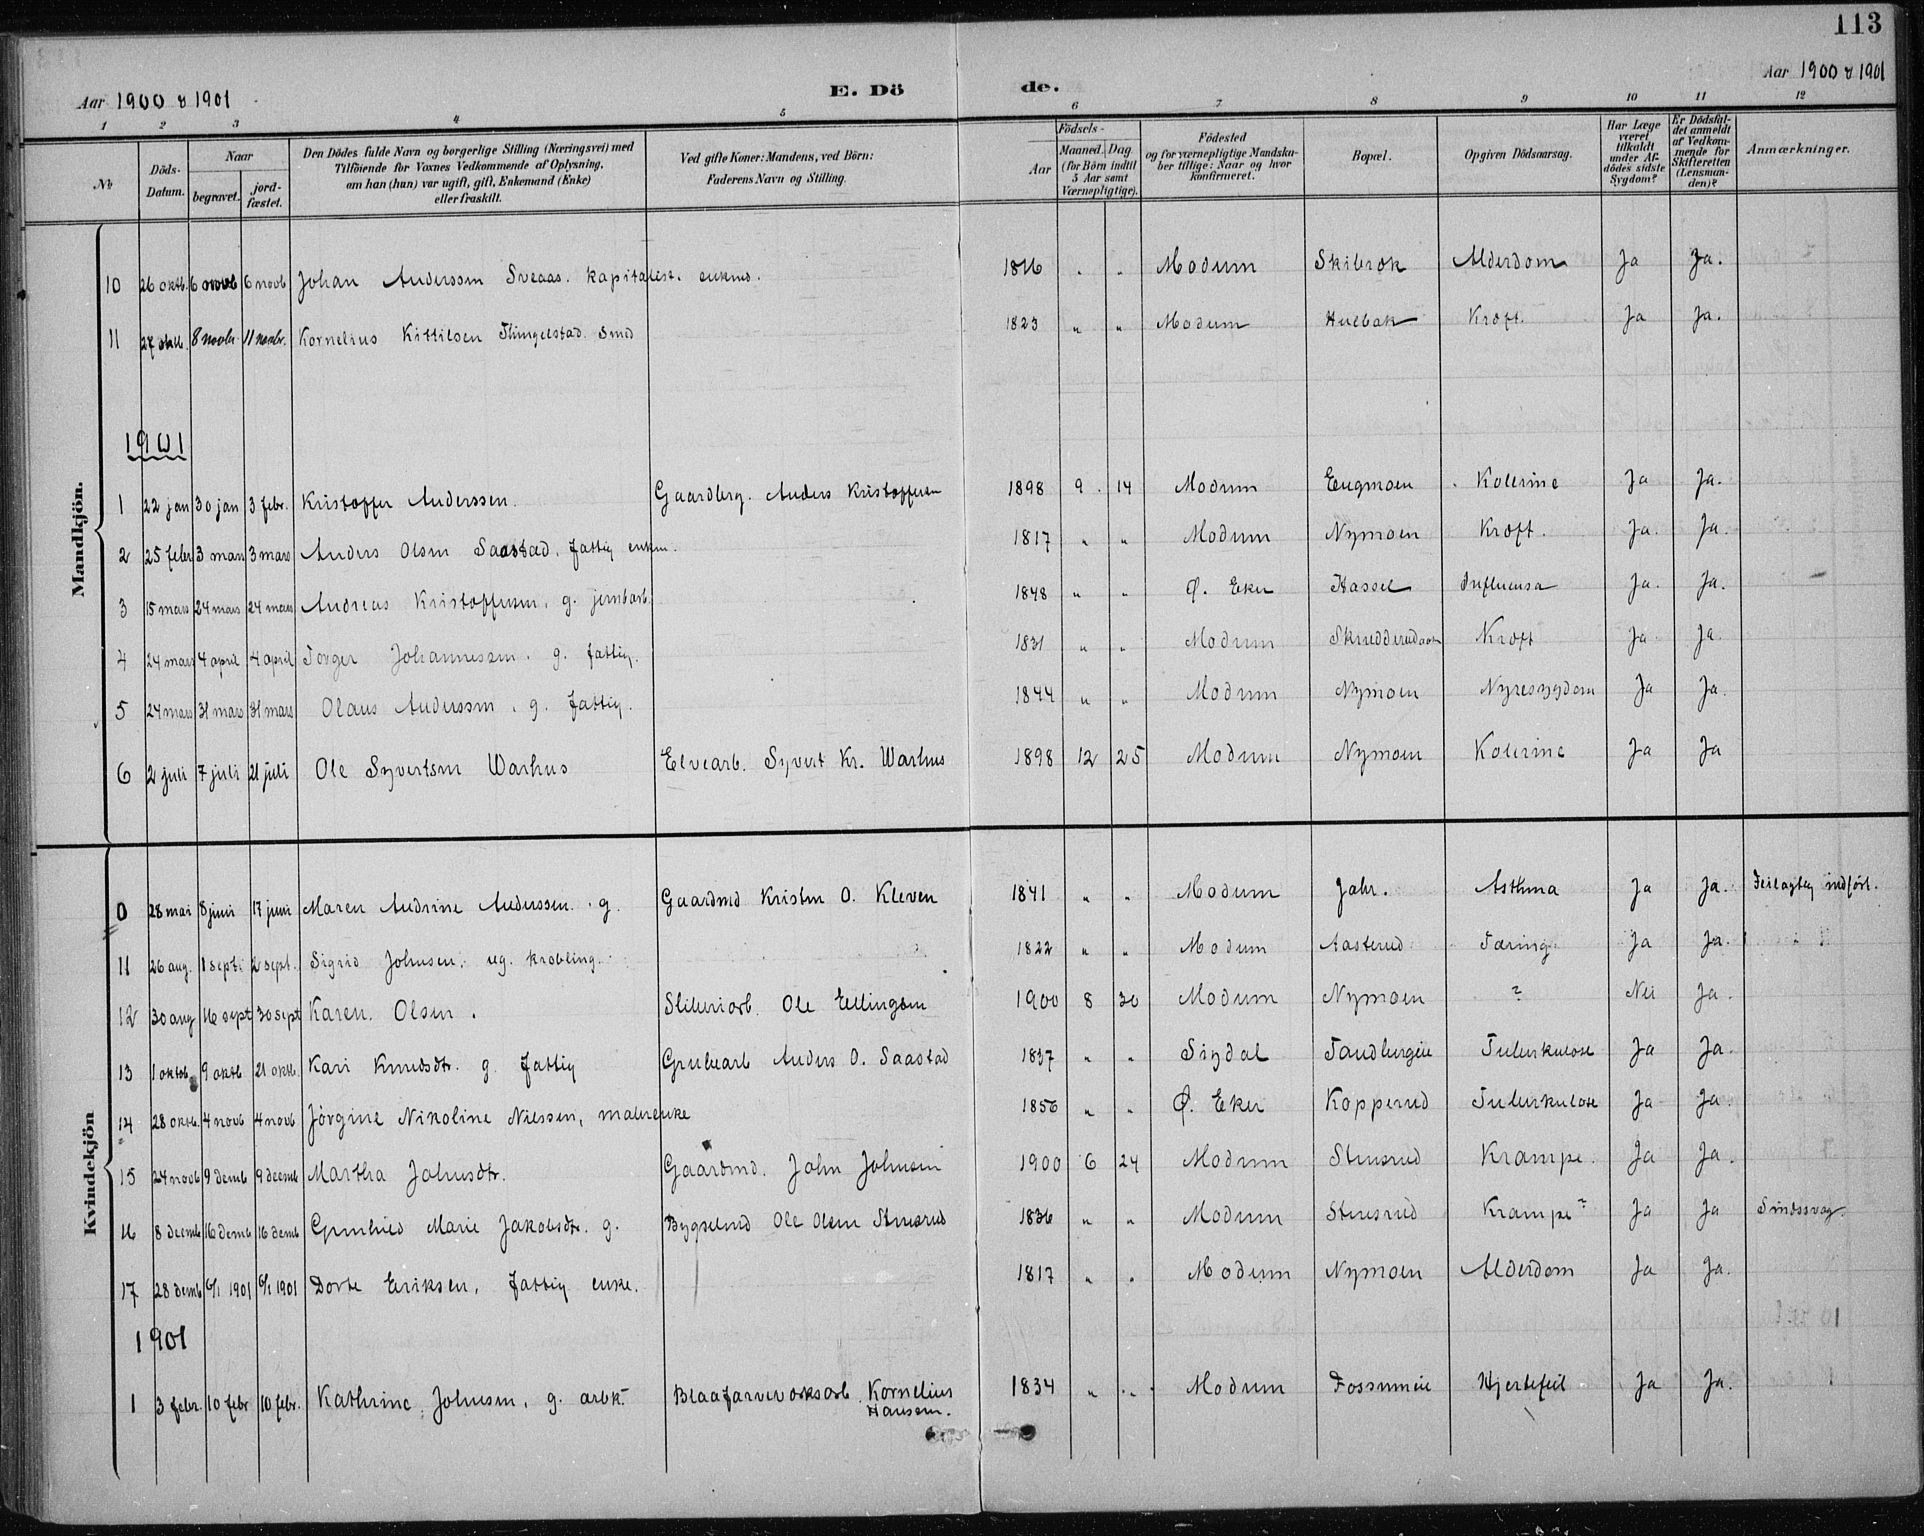 113
Aar 1900 & 1901
E. Dö de.
Aar 1900 & 1901
1 2 3 4 5 6 7 8 9 10 11 12
№ Döds-Datum. Naar begravet. jordfæstet. Den Dödes fulde Navn og borgerlige Stilling (Næringsvei) med Tilföiende for Voxnes Vedkommende af Oplysning, om han (hun) var ugift, gift, Enkemand (Enke) eller fraskilt. Ved gifte Koner: Mandens, ved Börn: Faderens Navn og Stilling. Födsels- Aar Maaned. Dag (for Börn indtil 5 Aar samt Værnepligtige). Födested og for værnepligtige Mandskuber tillige: Naar og hvor konfirmeret. Bopæl. Opgiven Dödsaarsag. Har Læge været tilkaldt under Afdödes sidste Sygdom? Er Dödsfaldet anmeldt af Vedkommende for Skifteretten (Lensmanden)? Anmærkninger.
Mandkjön.
10 26 oktb. 6 novb 6 novb Johan Anderssen Sveaas. kapitalist. enkmd. 1816 " " Modum Skibrek Alderdom Ja Ja.
11 27 oktb. 8 novbr 11 novbr. Kornelius Kittilsen Thingelstad. Smed 1823 " " Modum Hulbak Kræft. Ja Ja.
1901
1 22 jan 30 jan 3 febr. Kristoffer Anderssen. Gaardbrg. Anders Kristoffersen 1898 9. 14 Modum Engmoen Kolerine Ja Ja.
2 25 febr 3 mars 3 mars Anders Olsen Saastad, fattig enkm. 1817 " " Modum Nymoen Kræft. Ja. Ja.
3 15 mars 24 mars 24 mars Andreas Kristoffersen, g. jernbarb. 1848 " " Ø. Eker Hassel Influensa Ja. Ja.
4 24 mars 4 april 4 april Torger Johannessen. g. fattig. 1831 " " Modum Kræft Ja. Ja.
5 24 mars 31 mars 31 mars Olaus Anderssen, g. fattig. 1844 " " Modum Nymoen Nyresygdom Ja Ja.
6 2 juli 7 juli 21 juli Ole Syvertsen Warhus Elvearb. Syvert Kr. Warhus 1898 12 25 Modum Nymoen Kolerine Ja Ja
Kvindekjön
0 28 mai 8 juni 17 juni Maren Andrine Anderssen. g. Gaardmd Kristen O. Kleven 1841 " " Modum Jahr. Asthma Ja Ja. Feilagtig indført.
11 26 aug. 1 sept. 2 sept. Sigrid Johnsen. ug. krøbling. 1822 " " Modum Aasterud Tæring Ja Ja.
12 30 aug 16 sept 30 sept Karen Olsen. Sliberiarb. Ole Ellingsen 1900 8 30 Modum Nymoen ? Nei Ja.
13 1 oktb. 9 oktb 21 oktb. Kari Knudsdtr. g. fattig Grubearb Anders O. Saastad 1837 " " Sigdal Tandbergeie Tuberkulose Ja Ja.
14 28 oktb. 4 novb 4 novb Jørgine Nikoline Nilssen, malerenke 1856 " " Ø. Eker Kopperud Tuberkulose Ja Ja.
15 24 novb 9 demb 9 decmb Martha Johnsdtr. Gaardmd. John Johnsen 1900 6 24 Modum Stensrud Krampe. Ja Ja.
16 8 decmb 16 demb 16 demb Gunhild Marie Jakobsdtr. g. Bygselmd Ole Olsen Stensrud 1836 " " Modum Stensrud Krampe? Ja Ja Sindssvag.
17 28 demb 6/1 1901 6/1 1901 Dorte Eriksen, fattig enke. 1817 " " Modum Nymoen Alderdom Ja Ja.
1901
1 3 febr. 10 febr 10 febr. Kathrine Johnsen, g. arbk. Blaafarveværksarb. Kornelius Hansen. 1834 " " Modum Fossumeie Hjertefeil Ja Ja.